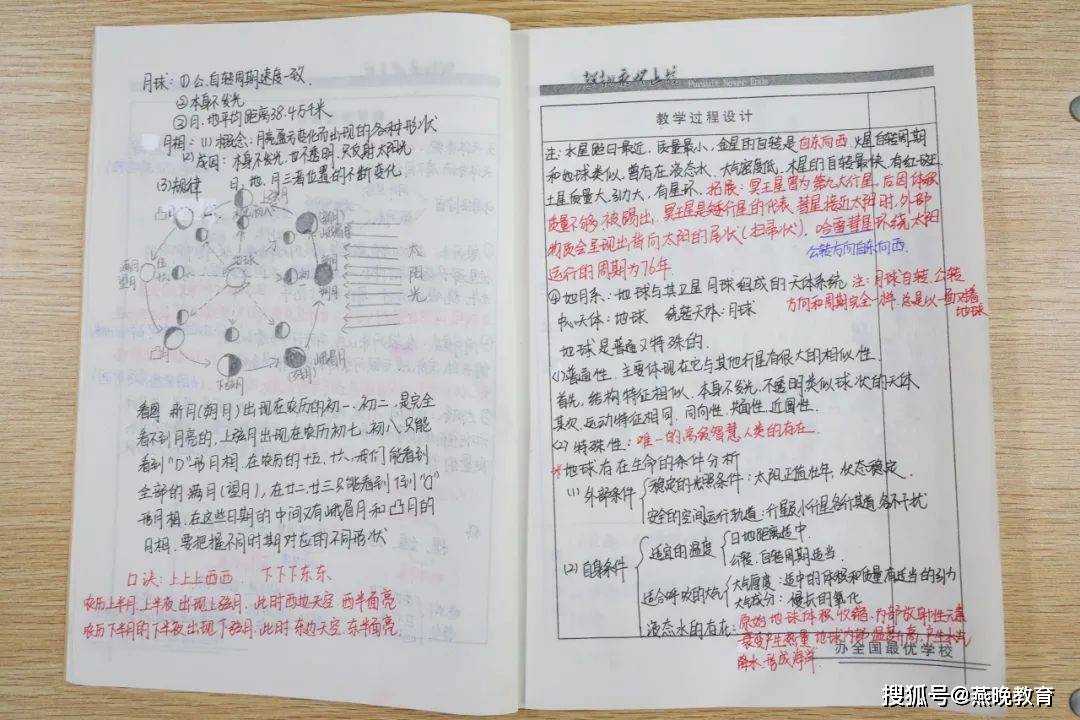 月球:(1)公.自转周期速度一致.
②本身不发光
③月.地平均距离38.4万千米
月相:(1)概念:月亮盈亏变化而出现的各种形状
(2)成因:本身不发光,也不透明,只反射太阳光
日、地、月三者位置的不断变化
(3)规律
上弦月
凸月
蛾眉月
满月
望月
地球
新月
朔月
太
阳
光
凸月
下弦月
蛾眉月
(残月)
看图 新月(朔月)出现在农历的初一、初二,是完全
看不到月亮的,上弦月出现在农历初七、初八,只能
看到"D"形月相,在农历的十五、十六,我们能看到
全部的满月(望月),在廿二、廿三只能看到
形月相,在这些日期的中间又有峨眉月和凸月的
月相,要把握不同时期对应的不同形状
口诀:上上上西西 下下下东东
农历上半月,上半夜出现上弦月,此时西边天空,西半面亮
农历下半月的下半夜出现下弦月,此时东边天空,东半面亮.
Pursuit Never Ends
教学过程设计
注:水星距日最近,质量最小,金星的自转是自东向西,火星自转周期
和地球类似,曾存在液态水,大气密度低,木星的自转最快,有红斑
土星质量大,引力大,有星环,拓展:冥王星曾为第九大行星,后因体积
质量不够,被踢出,冥王星是矮行星的代表 彗星接近太阳时,外部
物质会呈现出背向太阳的尾状(扫帚状),哈雷彗星环绕太阳
公转方向自东向西.
运行的周期为76年.
④地月系:地球与其卫星月球组成的天体系统 注:月球自转.公转
中心天体:地球 绕转天体:月球 方向和周期完全一样,总是以一面对着
地球
地球是普通又特殊的.
(1)普通性,主要体现在它与其他行星有很大的相似性.
首先,结构特征相似,本身不发光,不透明类似球状的天体
其次,运动特征相同,同向性,共面性,近圆性.
(2)特殊性:唯一的高级智慧人类的存在.
*地球存在生命的条件分析
(1)外部条件 稳定的光照条件:太阳正值壮年,状态稳定.
安全的空间运行轨道:大行星小行星各行其道,各不干扰
(2)自身条件 适宜的温度 日地距离适中.
公转,自转周期适当.
适合呼吸的大气 大气厚度:适中的体积和质量有适当的引力
大气成分:漫长的氧化
液态水的存在:原始地球体积收缩,内部放射性元素
衰变产生热量,地球内部温度升高,产生水汽
降水.形成海洋
办全国最优学校
搜狐号@燕晚教育